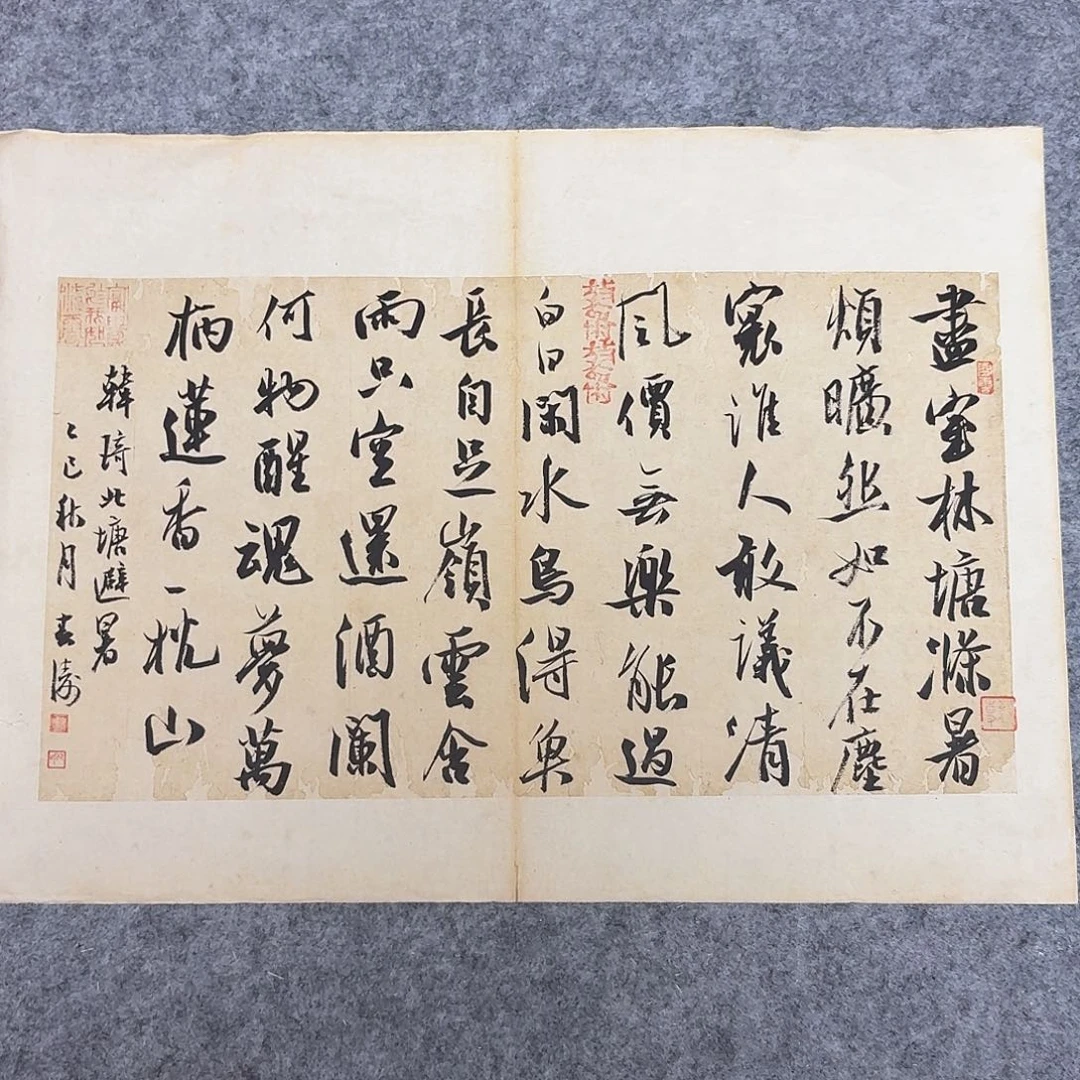 盡室林塘滌暑
煩曠然如不在塵
寰誰人敢議清
風價無樂能過
白日閑水鳥得魚
長自足嶺雲含
雨只空還酒闌
何物醒魂夢萬
柄蓮香一枕山
韓琦北塘避暑
乙巳秋月